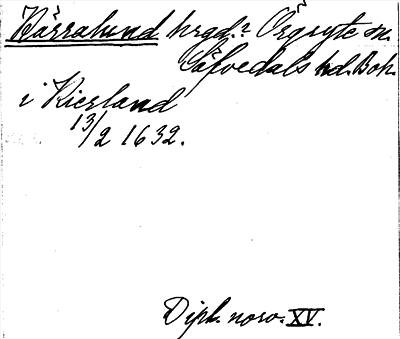 Kärralund hrgd.? Örgryte sn.
Säfvedals hd. Boh.
i Kierland
13/2 1632.
Dipl. norv. XV.